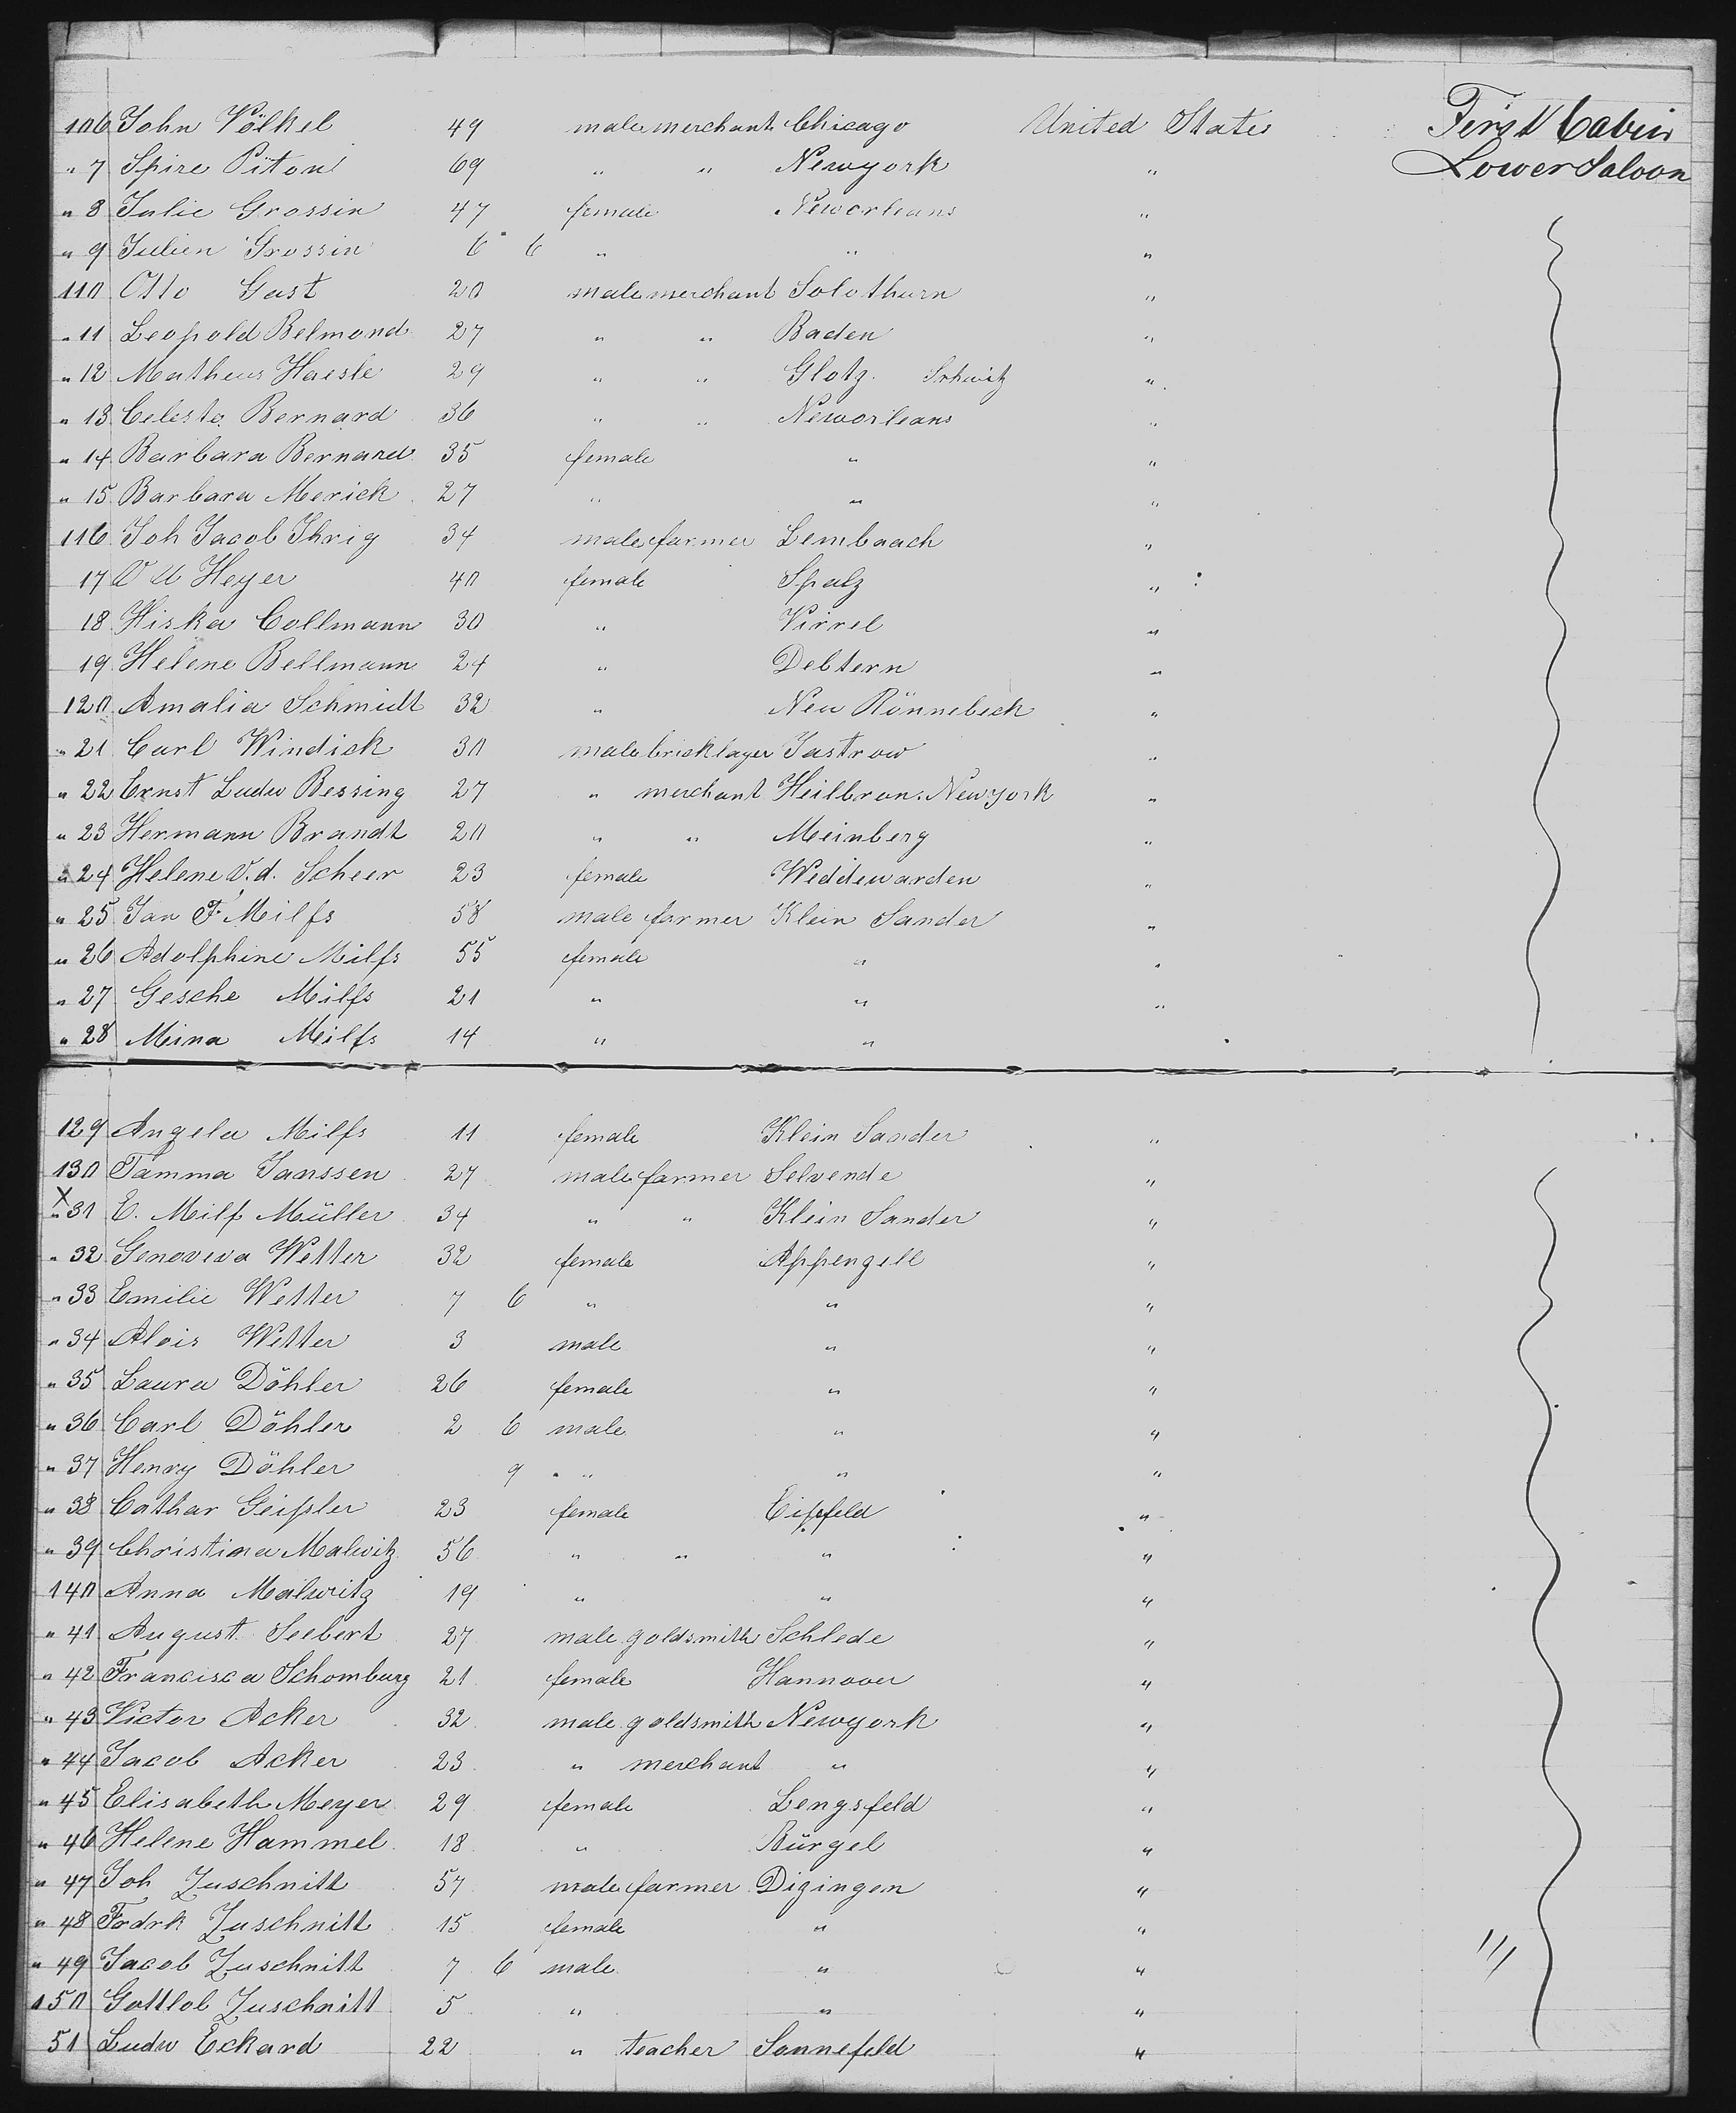 106 John Völkel 49 male merchant Chicago United States First Cabin
" 7 Spire Piton 69 " " Newyork " Lower Saloon
" 8 Julie Grossin 47 female Neworleans "
" 9 Julien Grossin 6 6 " " "
110 Otto Gast 20 male merchant Solothurn "
" 11 Leopold Belmond 27 " " Baden "
" 12 Matheus Haesle 29 " " Glotz. Schwitz "
" 13 Celeste Bernard 36 " " Neworleans "
" 14 Barbara Bernard 35 female " "
" 15 Barbara Merick 27 " " "
116 Joh Jacob Ihrig 34 male farmer Lembaach "
17 Heyer 40 female Spalz "
18 Hiska Collmann 30 " Virrel "
19 Helene Bellmann 24 " Debtern "
120 Amalia Schmidt 32 " Neu Rönnebeck "
" 21 Carl Windick 30 male bricklayer Jastrow "
" 22 Ernst Ludw Bessing 27 " merchant Heilbron. Newyork "
" 23 Hermann Brandt 20 " " Meinberg "
" 24 Helene V.d. Scheer 23 female Weddewarden "
" 25 Jan F. Meilfs 58 male farmer Klein Sander "
" 26 Adolphine Milfs 55 female " "
" 27 Gesche Milfs 21 " " "
" 28 Meina Meilfs 14 " "
129 Angela Milfs 11 female Klein Sander "
130 Tamma Janssen 27 male farmer Selvende "
X
" 31 E. Milf Müller 34 " " Klein Sander "
" 32 Genoveva Wetter 32 female Appengell "
" 33 Emilie Wetter 7 6 " " "
" 34 Alois Wetter 3 male " "
" 35 Laura Döhler 26 female " "
" 36 Carl Döhler 2 6 male " "
" 37 Henry Döhler 9 " " "
" 38 Cathar Geißler 23 female Eißfeld "
" 39 Christina Malwitz 56 " " " "
140 Anna Malwitz 19 " " "
" 41 August Seebert 27 male goldsmith Schlede "
" 42 Francisca Schomburg 21 female Hannover "
" 43 Victor Acker 32 male goldsmith Newyork "
" 44 Jacob Acker 23 " merchant " "
" 45 Elisabeth Meyer 29 female Lengsfeld "
" 46 Helene Hammel 18 " Bürgel "
" 47 Joh Zuschnitt 57 male farmer Dizingen "
" 48 Fodrk Zuschnitt 15 female " "
" 49 Jacob Zuschnitt 7 6 male " "
150 Gottlob Zuschnitt 5 " " "
51 Ludw Eckard 22 " teacher Sonnefeld "